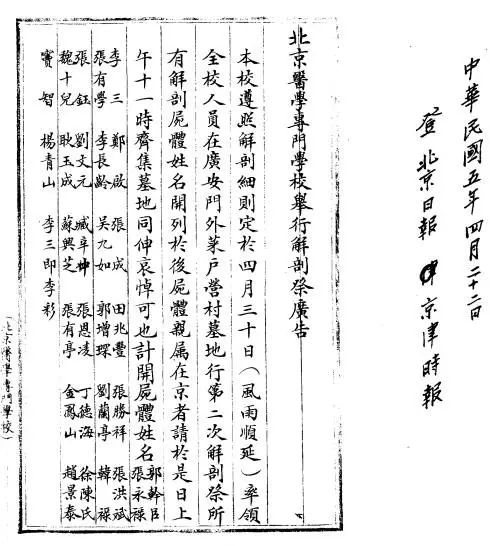 中華民國五年四月二十二日
登北京日報 京津時報
北京醫學專門學校舉行解剖祭廣告
本校遵照解剖細則定於四月三十日(風雨順延)率領
全校人員在廣安門外菜戶營村墓地行第二次解剖祭所
有解剖屍體姓名開列於後屍體親属在京者請於是日上
午十一時齊集墓地同伸哀悼可也計開屍體姓名
郭幹臣
張永祿
李三 鄭啟 張成 田兆豐 張勝祥 張洪斌
張有學 李長齡 吳九如 郭增琛 劉蘭亭 韓祿
張鈺 劉文元 臧辛 張恩凌 丁德海 徐陳氏
魏十兒 耿玉成 蘇興芝 張有亭 金鳳山 趙景泰
竇智 楊青山 李三郎李彩
(北京醫學專門學校)